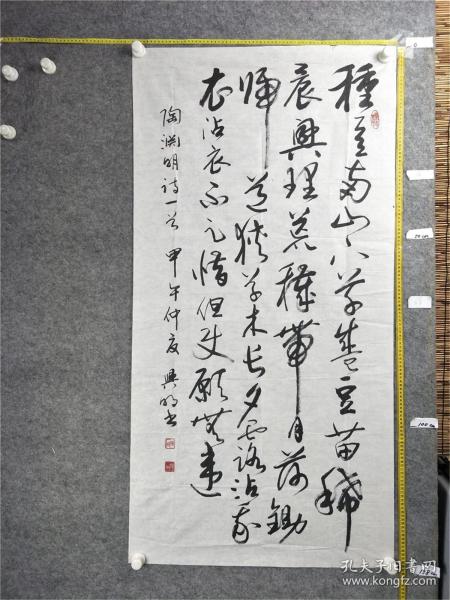 種豆南山下草盛豆苗稀
晨興理荒穢帶月荷鋤
歸道狹草木长夕露沾我
衣沾衣不足惜但使願無違
陶渊明詩一首 甲午仲夏 興明书
0
50cm
100cm
孔夫子旧书网
www.kongfz.com